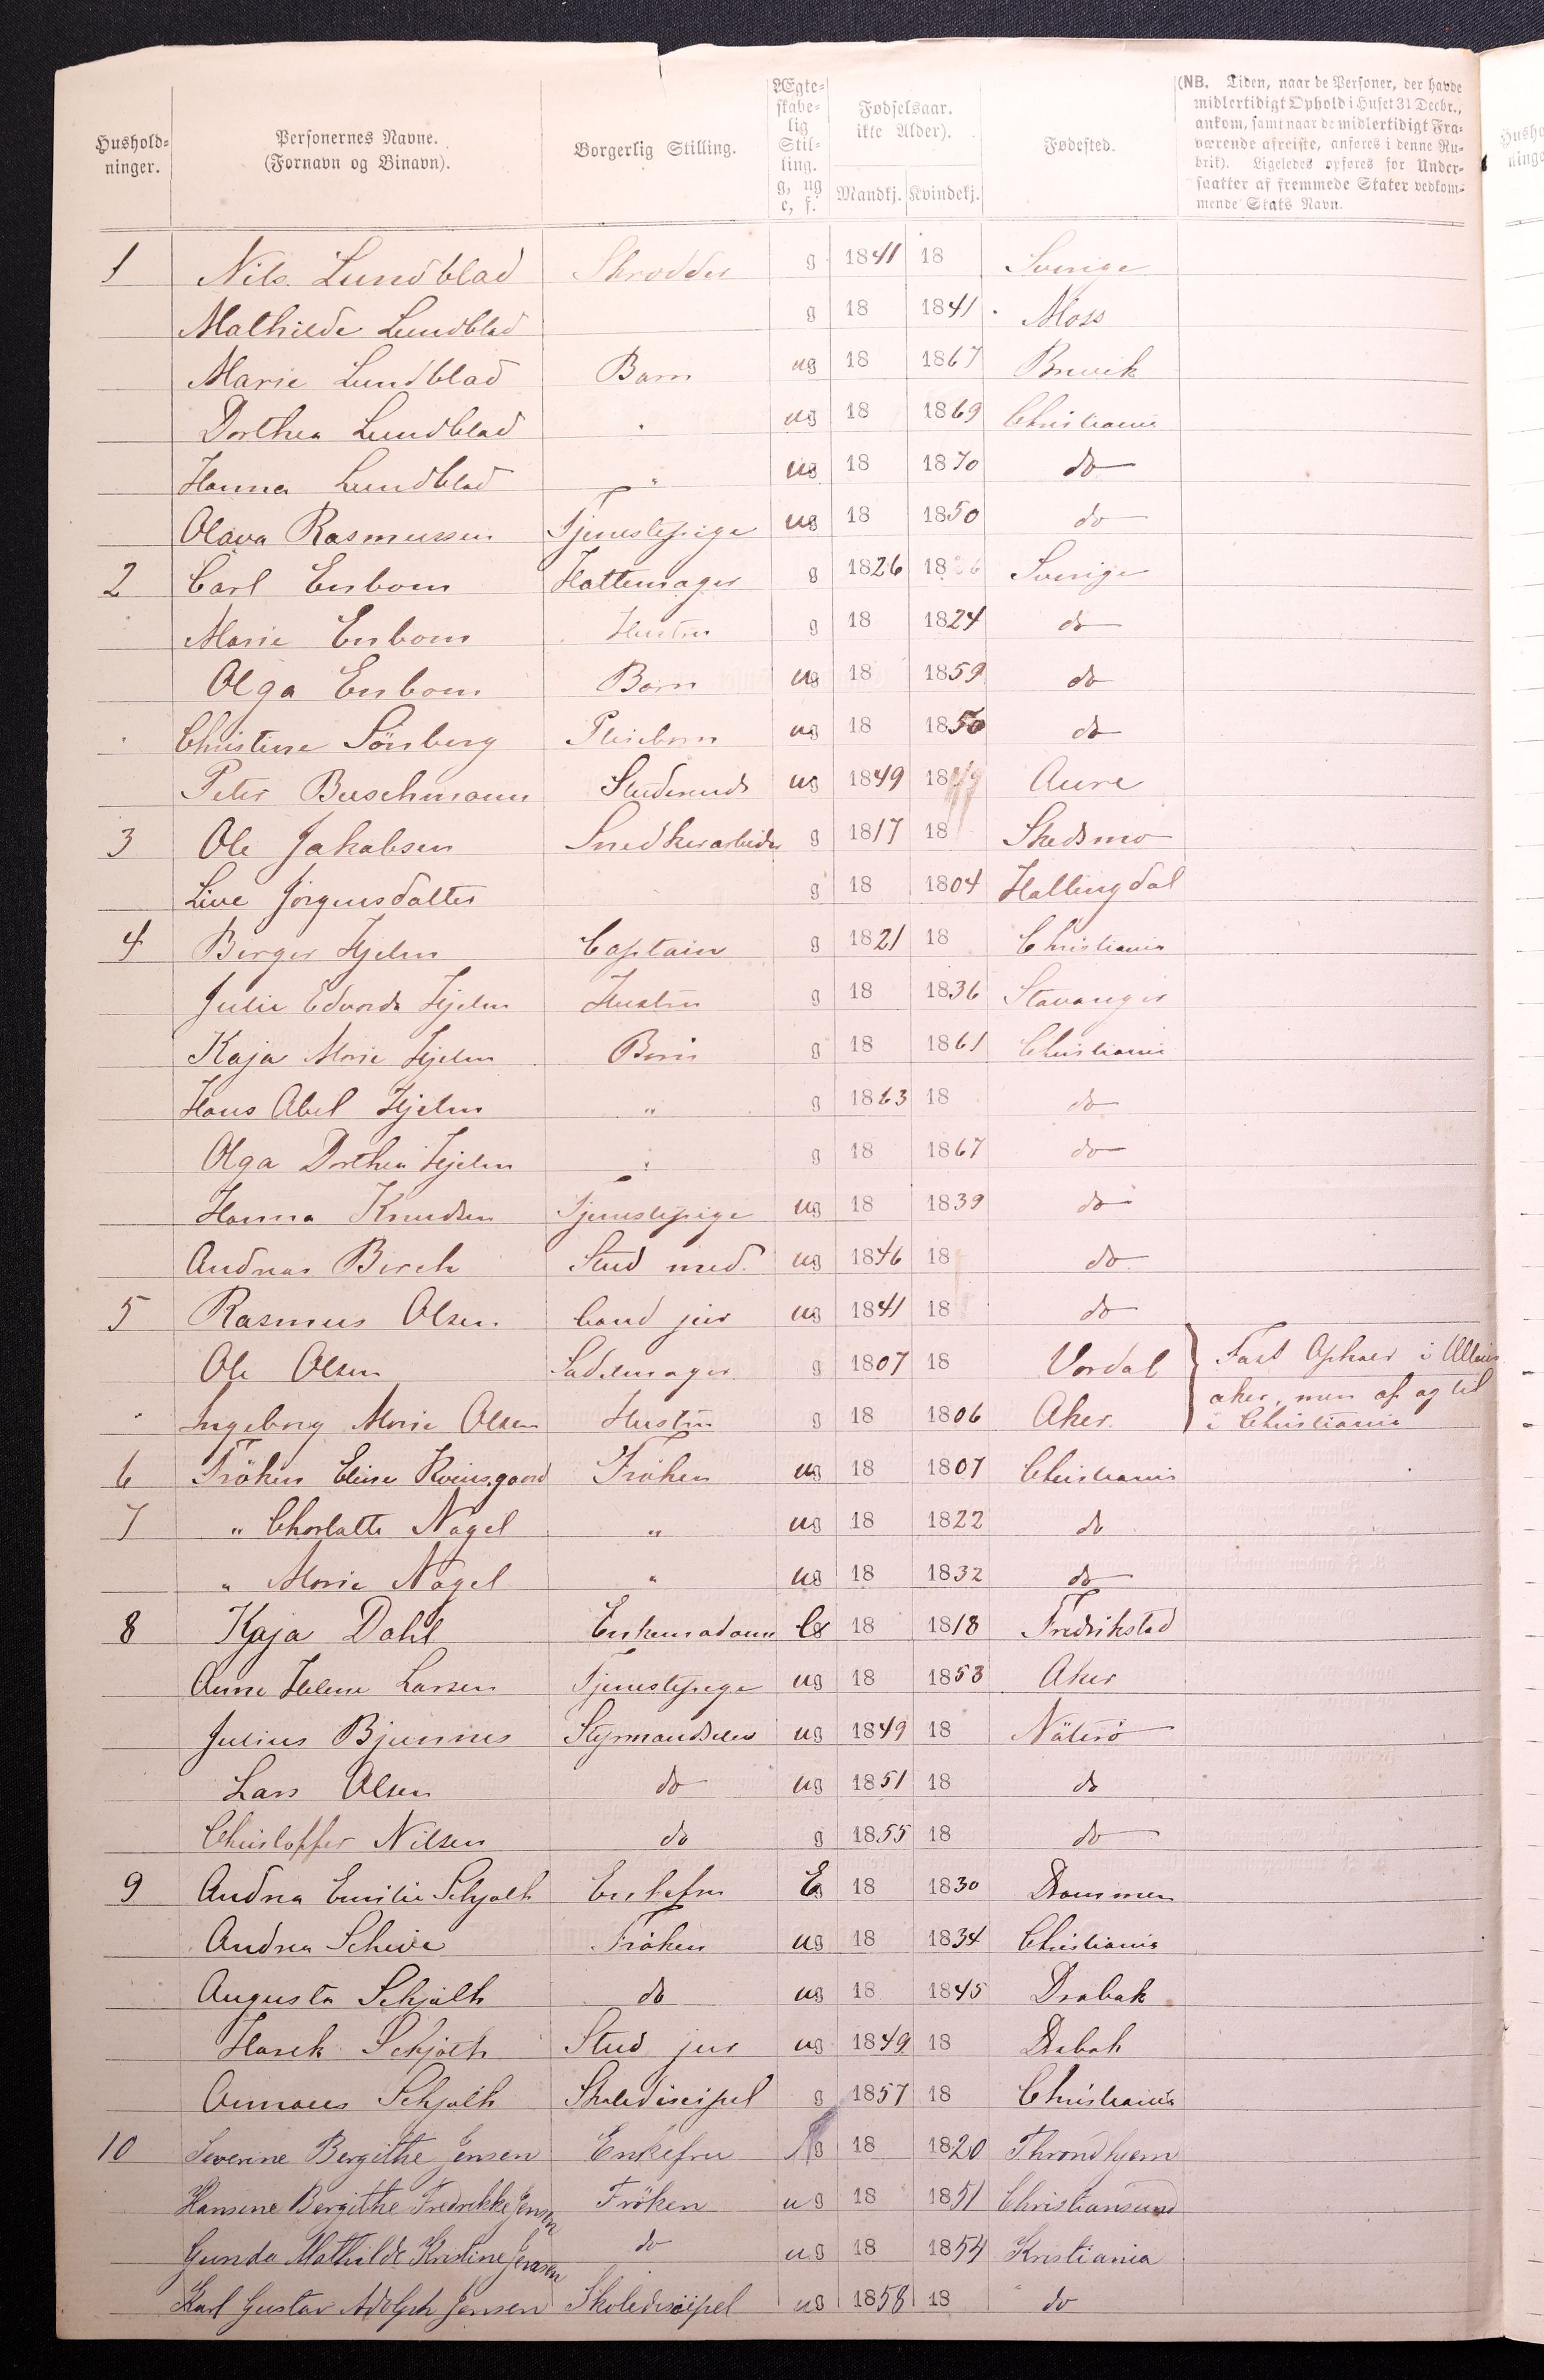 Hushold-
ninger.
Personernes Navne.
(Fornavn og Binavn).
Borgerlig Stilling.
Ægte-
skabe-
lig
Stil-
ling.
g, ug
e, f.
Fødselsaar.
ikke Alder).
Mandkj. Kvindekj.
Fødested.
(NB. Tiden, naar de Personer, der havde
midlertidigt Ophold i Huset 31 Decbr.,
ankom, samt naar de midlertidigt Fra-
værende afreiste, anføres i denne Ru-
brik). Ligeledes opføres for Under-
saatter af fremmede Stater vedkom-
mende Stats Navn.
1 Nils Lundblad Skrødder g 1841 18 Sverige
Mathilde Lundblad g 18 1841 Moss
Marie Lundblad Barn ug 18 1867 Brevik
Dorthea Lundblad " ug 18 1869 Christiania
Hanna Lundblad " ug 18 1870 do
Olava Rasmussen Tjenestepige ug 18 1850 do
2 Carl Enbom Hattemager g 1826 18 Sverige
Marie Enbom Hustru g 18 1824 do
Olga Enbom Barn ug 18 1859 do
Christine Sönberg Pleiebarn ug 18 1850 do
Peter Buschmann Studerende ug 1849 18 Aure
3 Ole Jakobsen Snedkerarbeider g 1817 18 Skedsmo
Live Jörgensdatter g 18 1804 Hallingdal
4 Birger Hjelm Captain g 1821 18 Christiania
Julie Edvarda Hjelm Hustru g 18 1836 Stavanger
Kaja Marie Hjelm Barn g 18 1861 Christiania
Hans Abel Hjelm " g 1863 18 do
Olga Dorthea Hjelm " g 18 1867 do
Hanna Knudsen Tjenestepige ug 18 1839 do
Andreas Birch Stud med. ug 1846 18 do
5 Rasmus Olsen Cand jur ug 1841 18 do
Ole Olsen Sadelmager g 1807 18 Vordal Fast Ophold i Ullens
Ingeborg Marie Olsen Hustru g 18 1806 Aker aker, men af og til
i Christiania
6 Fröken Elise Fröken ug 18 1807 Christiania
7 " Charlotte Nagel " ug 18 1822 do
" Marie Nagel " ug 18 1832 do
8 Kaja Dahl Enkemadame e 18 1818 Fredrikstad
Anne Helene Larsen Tjenestepige ug 18 1853 Aker
Julius Bjunnes Styrmandselev ug 1849 18 Nöterö
Lars Olsen do ug 1851 18 do
Christoffer Nilsen do g 1855 18 do
9 Andrea Emilie Schjøth Enkefru E 18 1830 Drammen
Andrea Scheve Fröken ug 18 1834 Christiania
Augusta Schjøth do ug 18 1845 Drøbak
Harek Schjøth Stud jur ug 1849 18 Drøbak
Schjøth Skoledisipel g 1857 18 Christiania
10 Severine Bergithe Jensen Enkefru 18 1820 Throndhjem
Hansine Bergithe Fredrikke Jensen Fröken ug 18 1851 Christiansund
Gunda Mathilde Kristine Jensen do ug 18 1854 Kristiania
Karl Gustav Adolph Jensen Skoledisipel ug 1858 18 do